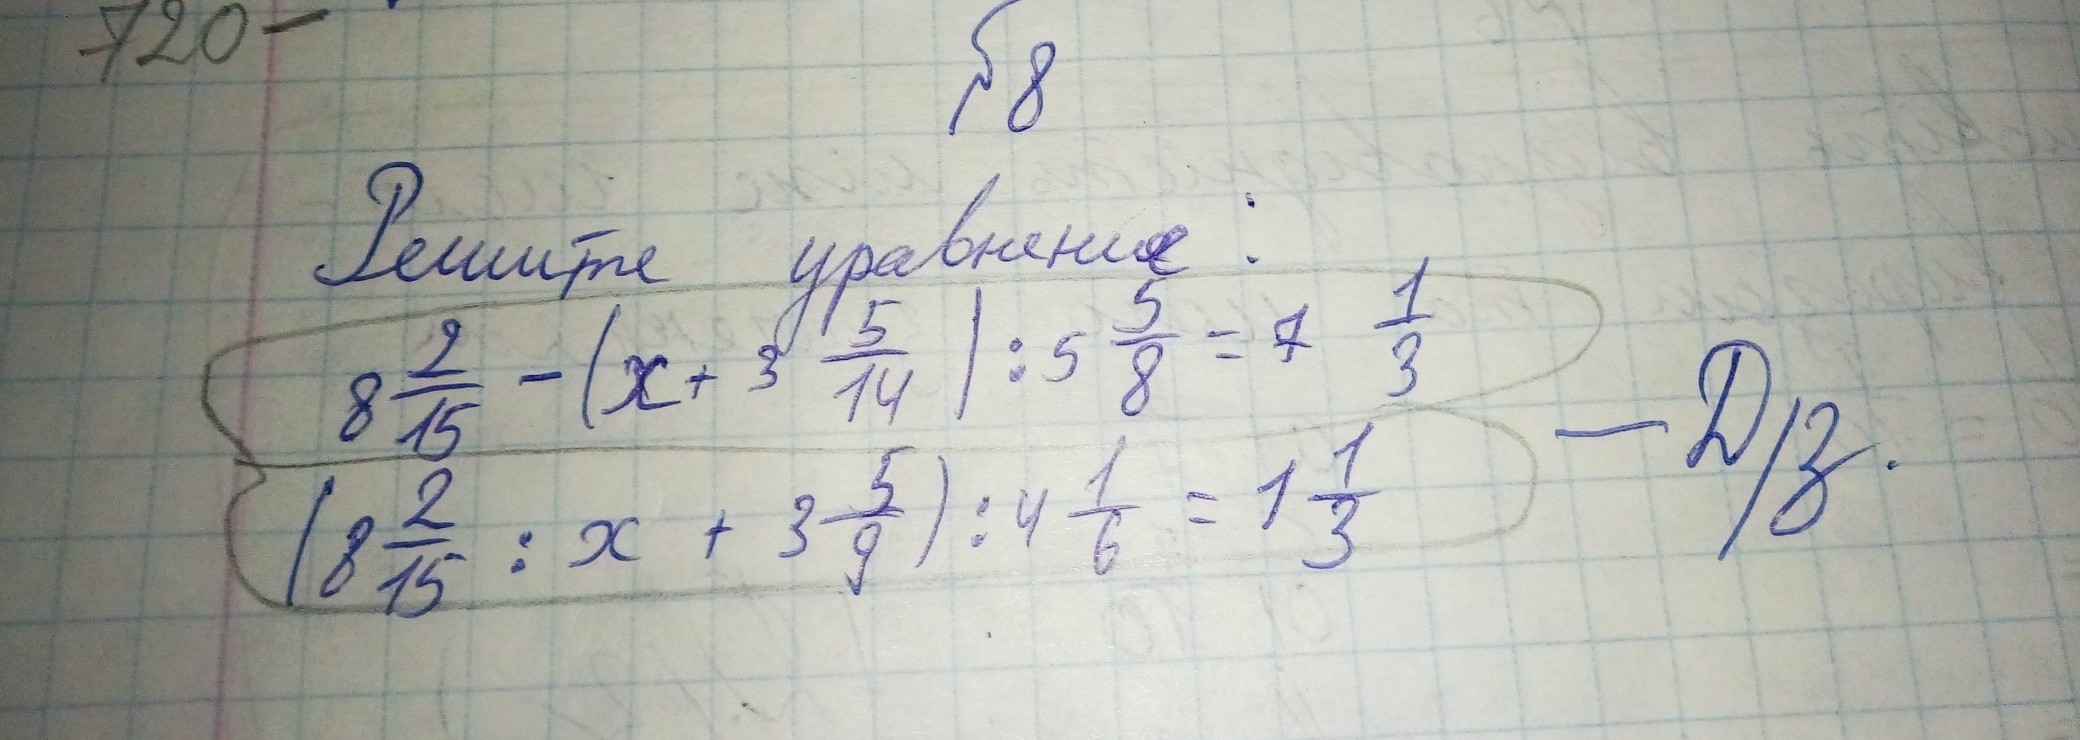 720-
№8
Решите уравнение:
8 2/15 - (x + 3 5/14) : 5 5/8 = 7 1/3
(8 2/15 : x + 3 5/9) : 4 1/6 = 1 1/3
— Д/з.